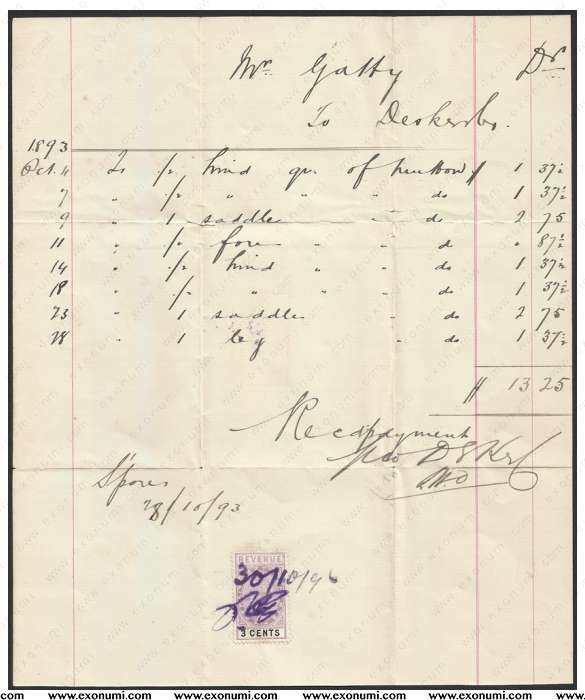 Mr. Gatty Dr
To
1893
Oct. 4 To 1/2 hind qr. of mutton $ 1 37½
7 " 1/2 " " " do 1 37½
9 " 1 saddle " do 2 75
11 " 1/2 fore " " do " 87½
14 " 1/2 hind " " do 1 37½
18 " 1/2 " " " do 1 37½
23 " 1 saddle " do 2 75
28 " 1 leg " do 1 37½
$ 13 25
Recd payment
S'pore
28/10/93
REVENUE
30/10/9
3 CENTS
www.exonumi.com www.exonumi.com www.exonumi.com www.exonumi.com